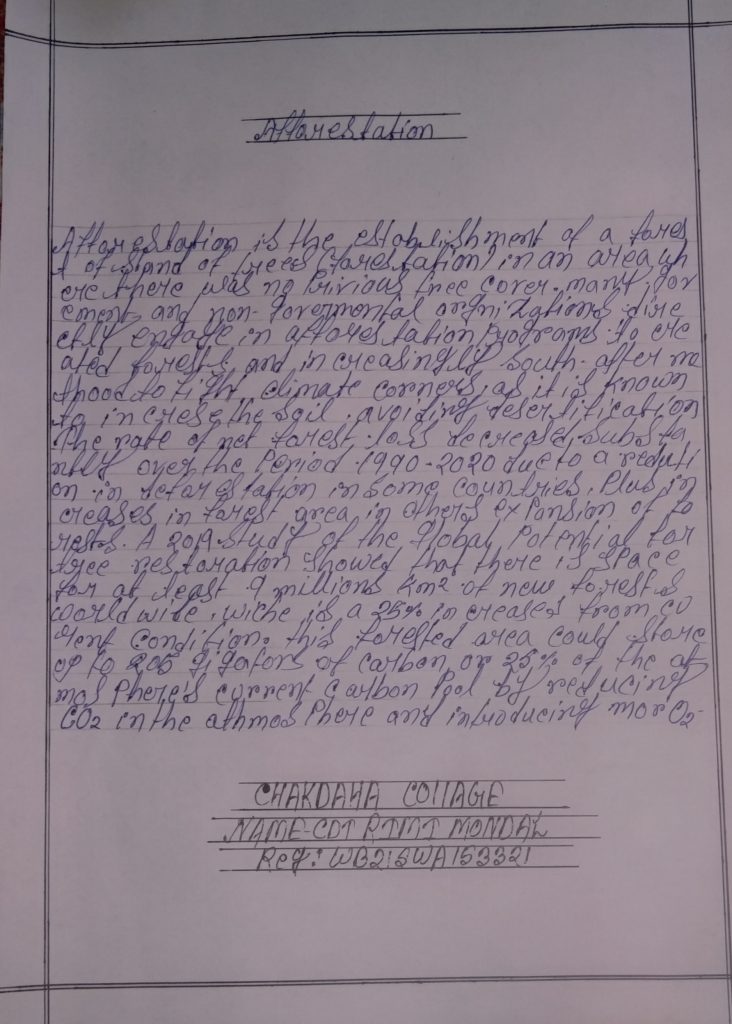 Afforestation
Afforestation is the establishment of a fores
t of stand of trees (forestation) in an area wh
ere there was no Privious tree cover. many gov
ement and non-Govermental orgnizations dire
ctly engage in afforestation Programs to cre
ated forests and increasingly South-after me
thood to fight climate corners, as it is known
to increse the soil avoiding desertification
The rate of net forest loss decreased substa
ntly over the Period 1990-2020 due to a reducti
on in deforestation in some countries. Plus in
creases in forest area in others expansion of fo
rests. A 2019 study of the Global Potential for
tree restoration showed that there is space
for at least 9 millions km² of new forests
worldwide, wiche is a 25% increased from cu
rent condition. this forested area could store
up to 205 gigatons of carbon or 25% of the at
mos Phere's current Carbon Pool by reducing
CO2 in the athmos Phere and introducing mor O2-
CHAKDAHA COllAGE
NAME-CDT RIMI MONDAL
Reg: WB21SWA153321